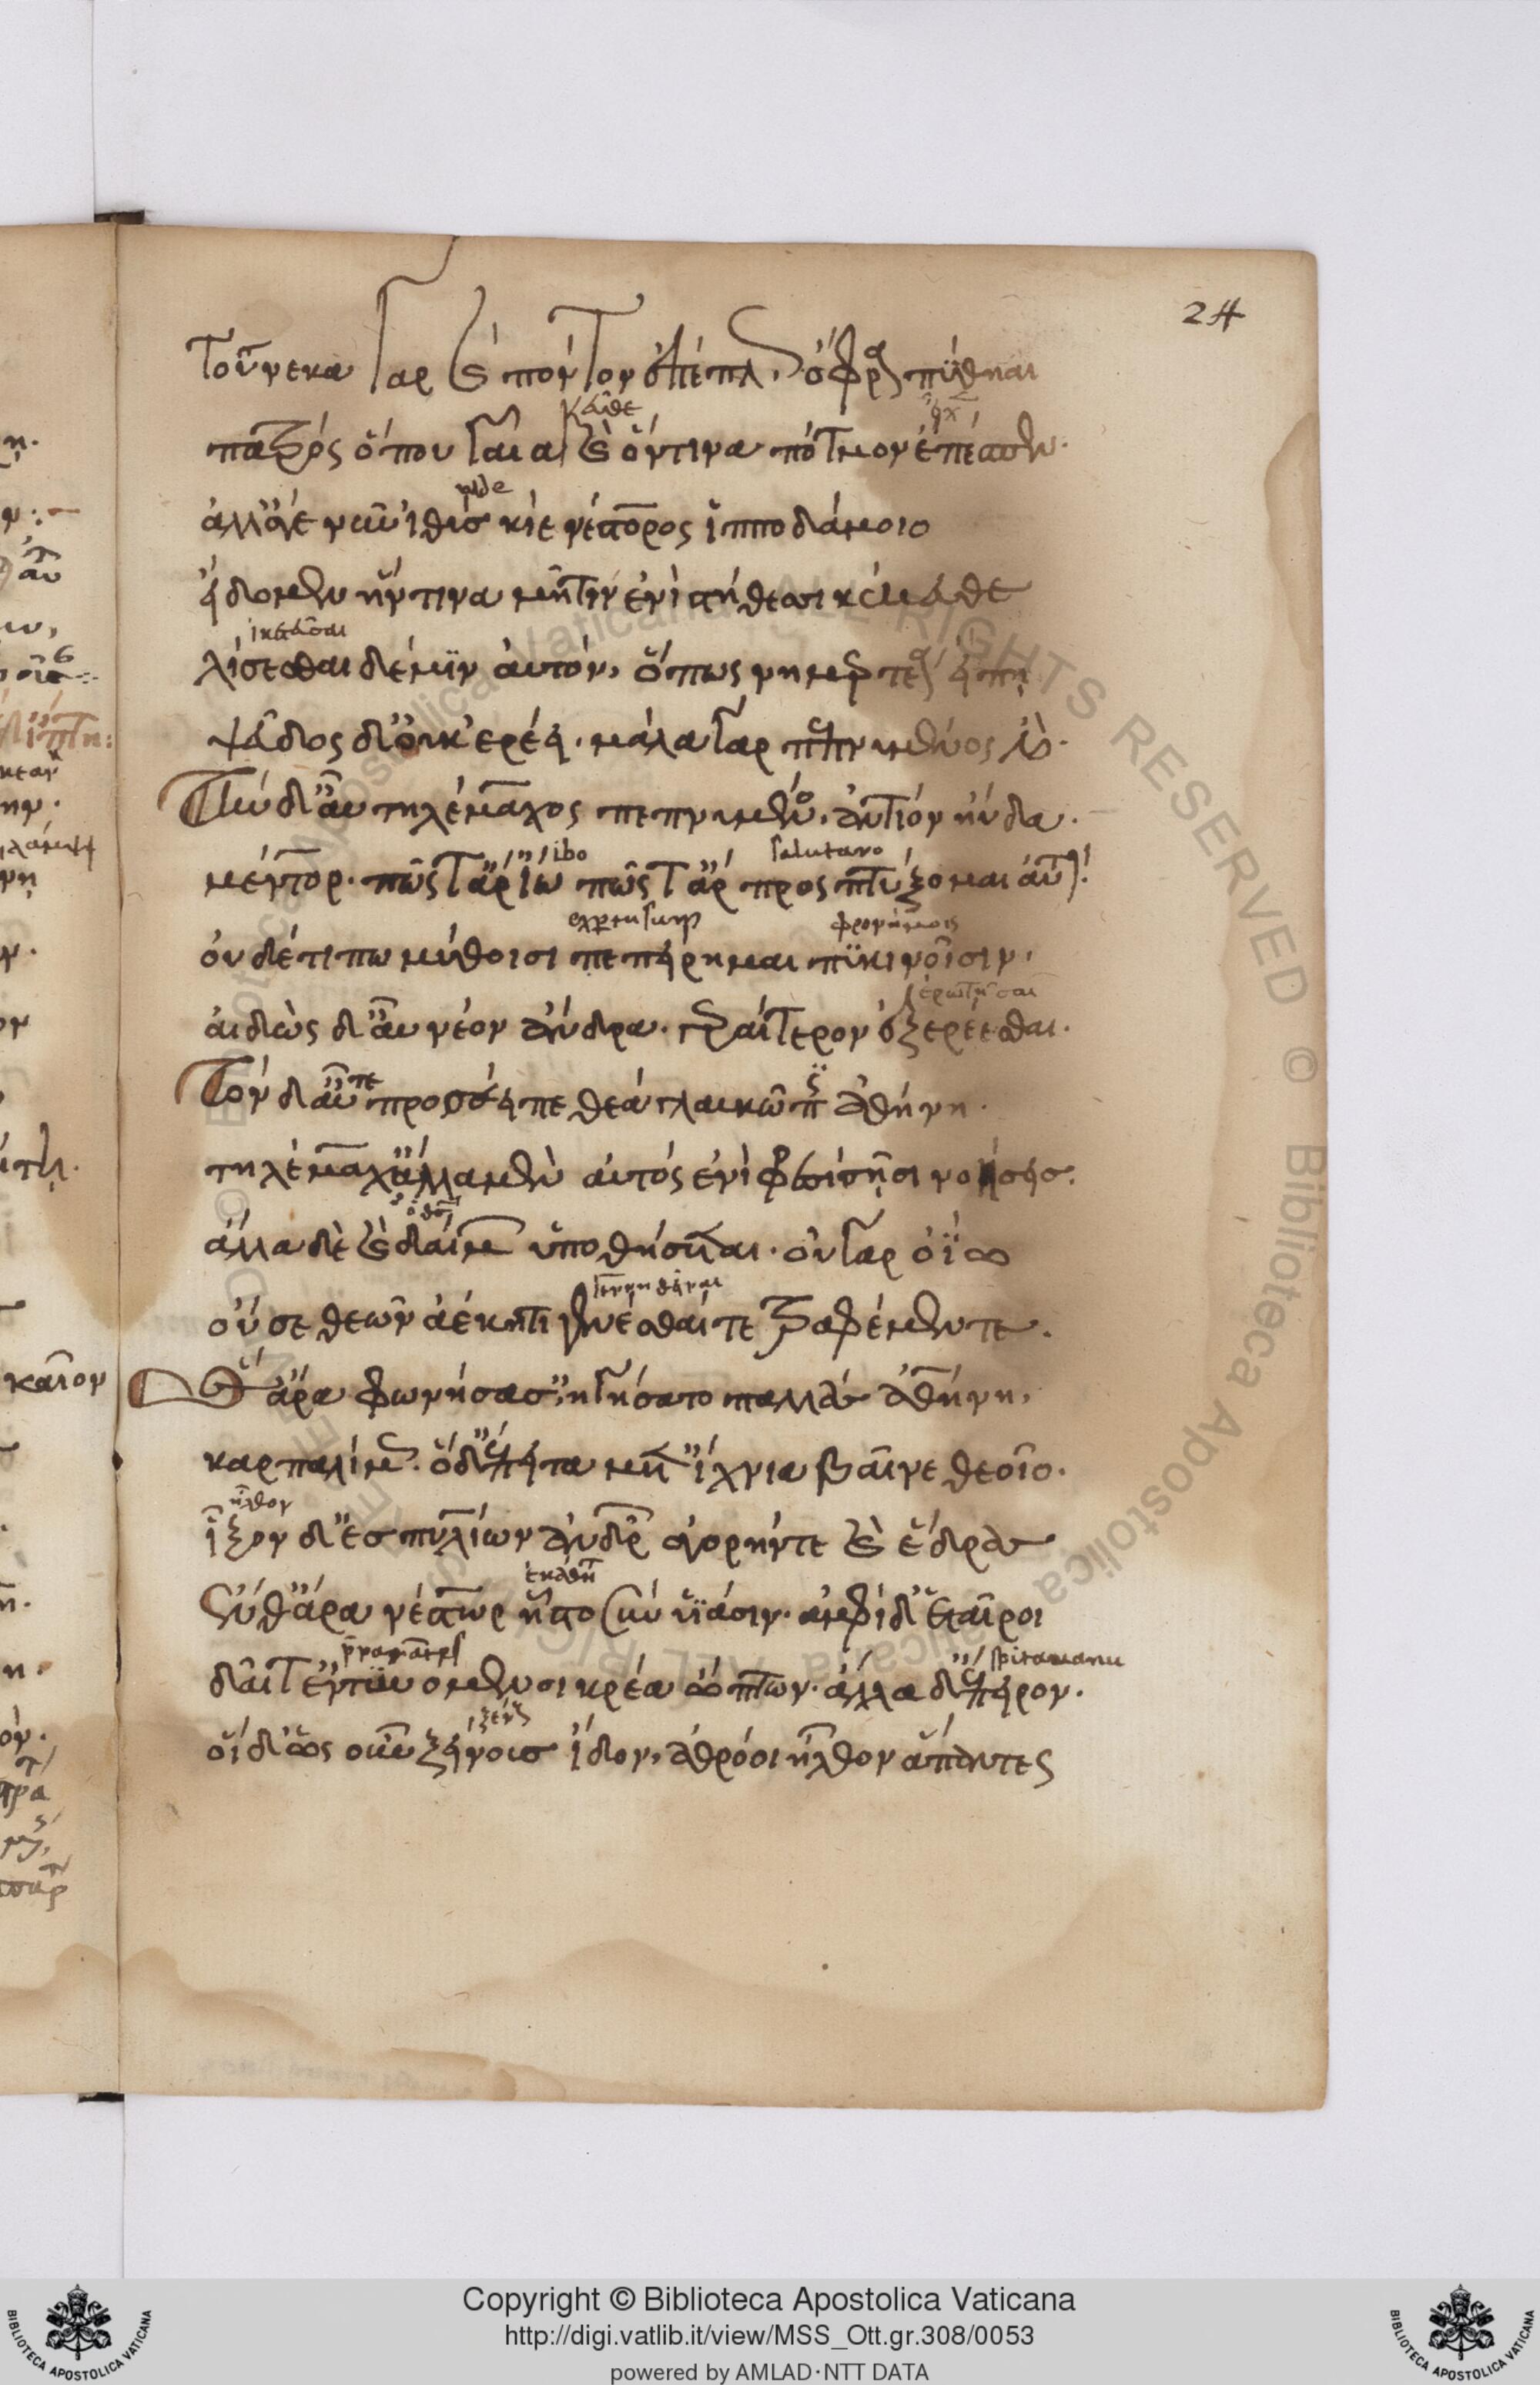 24
τοὔνεκα γὰρ καὶ πόντον ἐπέπλως ὄφρα πύθηαι
κάθε
πατρός ὅπου γαῖα καὶ ὅντινα πότμον ἐπέσπεν.
ἀλλ' ἄγε νῦν ἰθὺς κίε νέστορος ἱπποδάμοιο
εἴδομεν ἥντινα μῆτιν ἐνὶ στήθεσι κέκευθε
ἱκετεῦσαι
λίσσεσθαι δέ μιν αὐτόν, ὅπως νημερτέα εἴπῃ
ψεῦδος δ' οὐκ ἐρέει. μάλα γὰρ πεπνυμένος ἐστί.
Τὸν δ' αὖ τηλέμαχος πεπνυμένος ἀντίον ηὔδα.
ibo salutavo
μέντορ. πῶς τ' ἄρ' ἴω πῶς τ' ἄρ προσπτύξομαι αὐτόν.
φρονίμοις
οὐδέ τί πω μύθοισι πεπείρημαι πυκινοῖσιν.
ἐρωτῆσαι
αἰδὼς δ' αὖ νέον ἄνδρα. γεραίτερον ἐξερέεσθαι.
Τὸν δ' αὖτε προσέειπε θεά γλαυκῶπις ἀθήνη.
τηλέμαχ' ἄλλα μὲν αὐτός ἐνὶ φρεσὶ σῇσι νοήσεις.
ἄλλα δὲ καὶ δαίμων ὑποθήσεται. οὐ γὰρ ὀΐω
γεννηθῆναι
οὔ σε θεῶν ἀέκητι γενέσθαι τε τραφέμεν τε.
Ὣς ἄρα φωνήσασ' ἡγήσατο παλλὰς ἀθήνη,
καρπαλίμως. ὁ δ' ἔπειτα μετ' ἴχνια βαῖνε θεοῖο.
ἦλθον
ἷξον δ' ἐς πυλίων ἀνδρῶν ἄγυρίν τε καὶ ἕδρας
ἐκάθητο
ἔνθ' ἄρα νέστωρ ἧστο σὺν υἱάσιν. ἀμφὶ δ' ἑταῖροι
δαῖτ' ἐντυνόμενοι κρέα ὤπτων. ἄλλα δ' ἔπειρον.
οἱ δ' ὡς οὖν ξείνους ἴδον, ἀθρόοι ἦλθον ἅπαντες
Copyright © Biblioteca Apostolica Vaticana
http://digi.vatlib.it/view/MSS_Ott.gr.308/0053
powered by AMLAD·NTT DATA